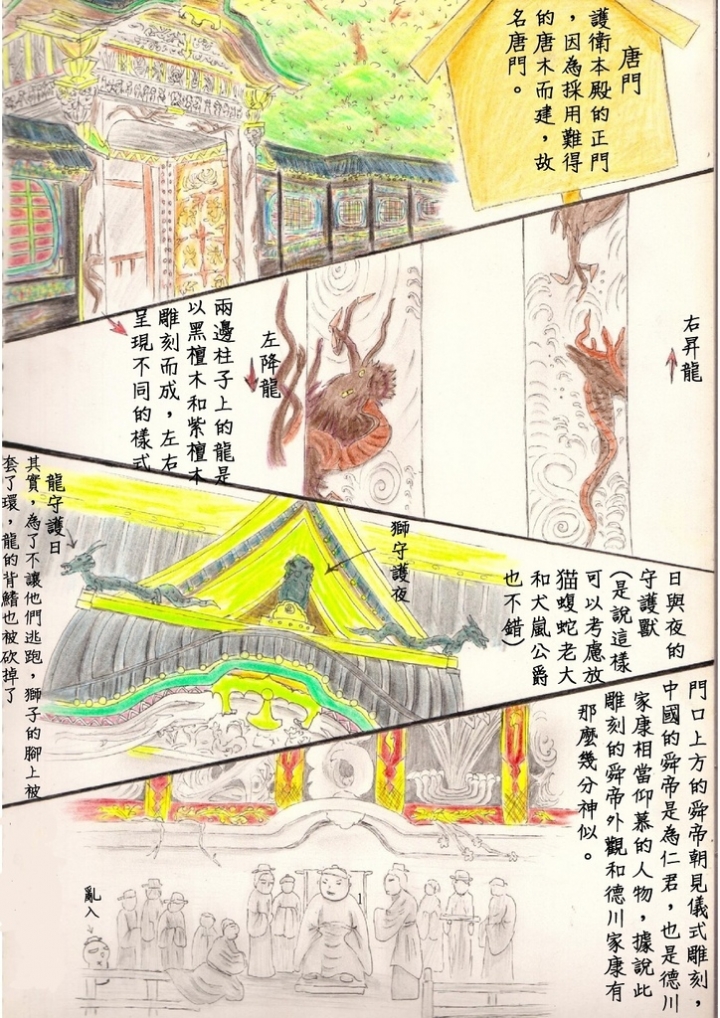 唐門
護衛本殿的正門
，因為採用難得
的唐木而建，故
名唐門。
右昇龍
左降龍
兩邊柱子上的龍是
以黑檀木和紫檀木
雕刻而成，左右
呈現不同的樣式
日與夜的
守護獸
(是說這樣
可以考慮放
猫蝮蛇老大
和犬嵐公爵
也不錯)
獅守護夜
龍守護日
其實，為了不讓他們逃跑，獅子的腳上被
套了環，龍的背鰭也被砍掉了
門口上方的舜帝朝見儀式雕刻，
中國的舜帝是為仁君，也是德川
家康相當仰慕的人物，據說此
雕刻的舜帝外觀和德川家康有
那麼幾分神似。
亂入